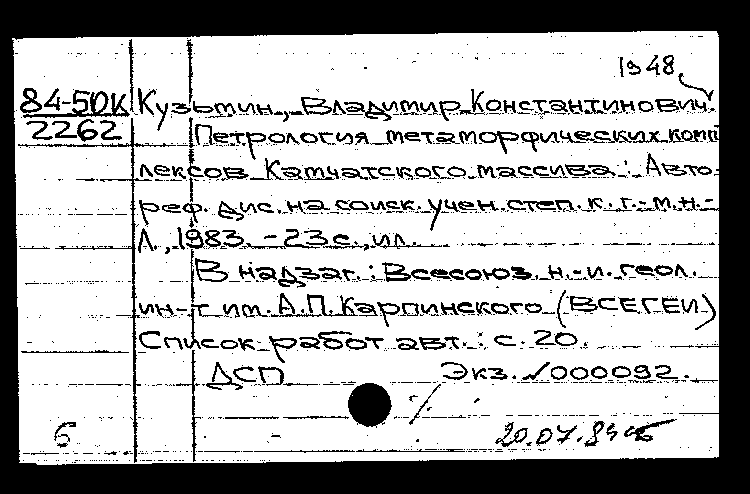 1948
84-5ДК Кузьмин, Владимир Константинович.
2262 Петрология метаморфических комп
лексов Камчатского массива: Авто-
реф. дис. на соиск. учен. степ. к. г.-м.н.-
Л., 1983. - 23 с., ил.
В надзаг.: Всесоюз. н.-и. геол.
ин-т им. А.П. Карпинского (ВСЕГЕИ)
Список работ авт.: с. 20.
ДСП Экз. √000092.
б 20.07.84